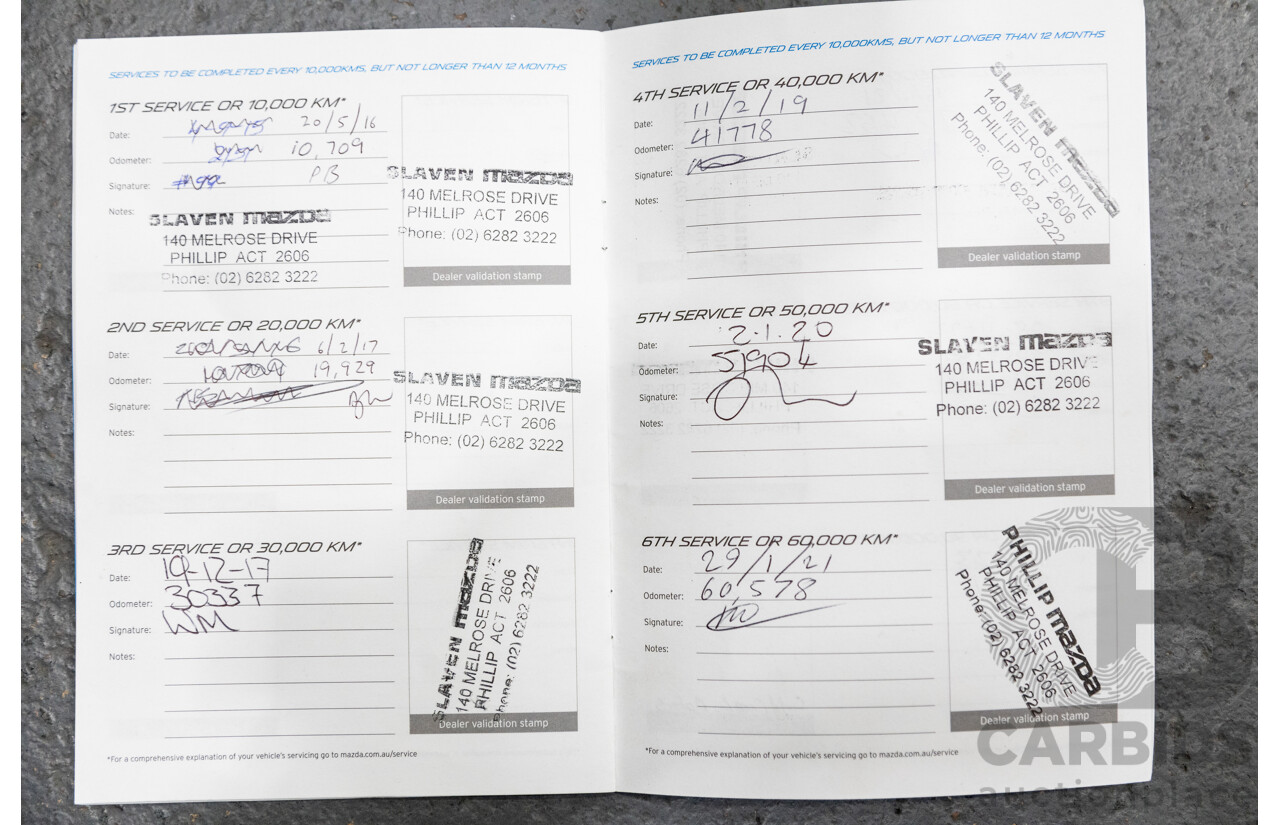 SERVICES TO BE COMPLETED EVERY 10,000KMS, BUT NOT LONGER THAN 12 MONTHS
1ST SERVICE OR 10,000 KM*
Date: 20/5/16
Odometer: 10,709
Signature: PB
Notes:
SLAVEN mazda
140 MELROSE DRIVE
PHILLIP ACT 2606
Phone: (02) 6282 3222
SLAVEN mazda
140 MELROSE DRIVE
PHILLIP ACT 2606
Phone: (02) 6282 3222
Dealer validation stamp
2ND SERVICE OR 20,000 KM*
Date: 6/2/17
Odometer: 19,929
Signature:
Notes:
SLAVEN mazda
140 MELROSE DRIVE
PHILLIP ACT 2606
Phone: (02) 6282 3222
Dealer validation stamp
3RD SERVICE OR 30,000 KM*
Date: 19-12-17
Odometer: 30337
Signature: WM
Notes:
SLAVEN mazda
140 MELROSE DRIVE
PHILLIP ACT 2606
Phone: (02) 6282 3222
Dealer validation stamp
*For a comprehensive explanation of your vehicle's servicing go to mazda.com.au/service
SERVICES TO BE COMPLETED EVERY 10,000KMS, BUT NOT LONGER THAN 12 MONTHS
4TH SERVICE OR 40,000 KM*
Date: 11/2/19
Odometer: 41778
Signature:
Notes:
SLAVEN mazda
140 MELROSE DRIVE
PHILLIP ACT 2606
Phone: (02) 6282 3222
Dealer validation stamp
5TH SERVICE OR 50,000 KM*
Date: 2.1.20
Odometer: 51904
Signature:
Notes:
SLAVEN mazda
140 MELROSE DRIVE
PHILLIP ACT 2606
Phone: (02) 6282 3222
Dealer validation stamp
6TH SERVICE OR 60,000 KM*
Date: 29/1/21
Odometer: 60,578
Signature:
Notes:
PHILLIP mazda
140 MELROSE DRIVE
PHILLIP ACT 2606
Phone: (02) 6282 3222
Dealer validation stamp
*For a comprehensive explanation of your vehicle's servicing go to mazda.com.au/service
CARBIDS
auctionplace